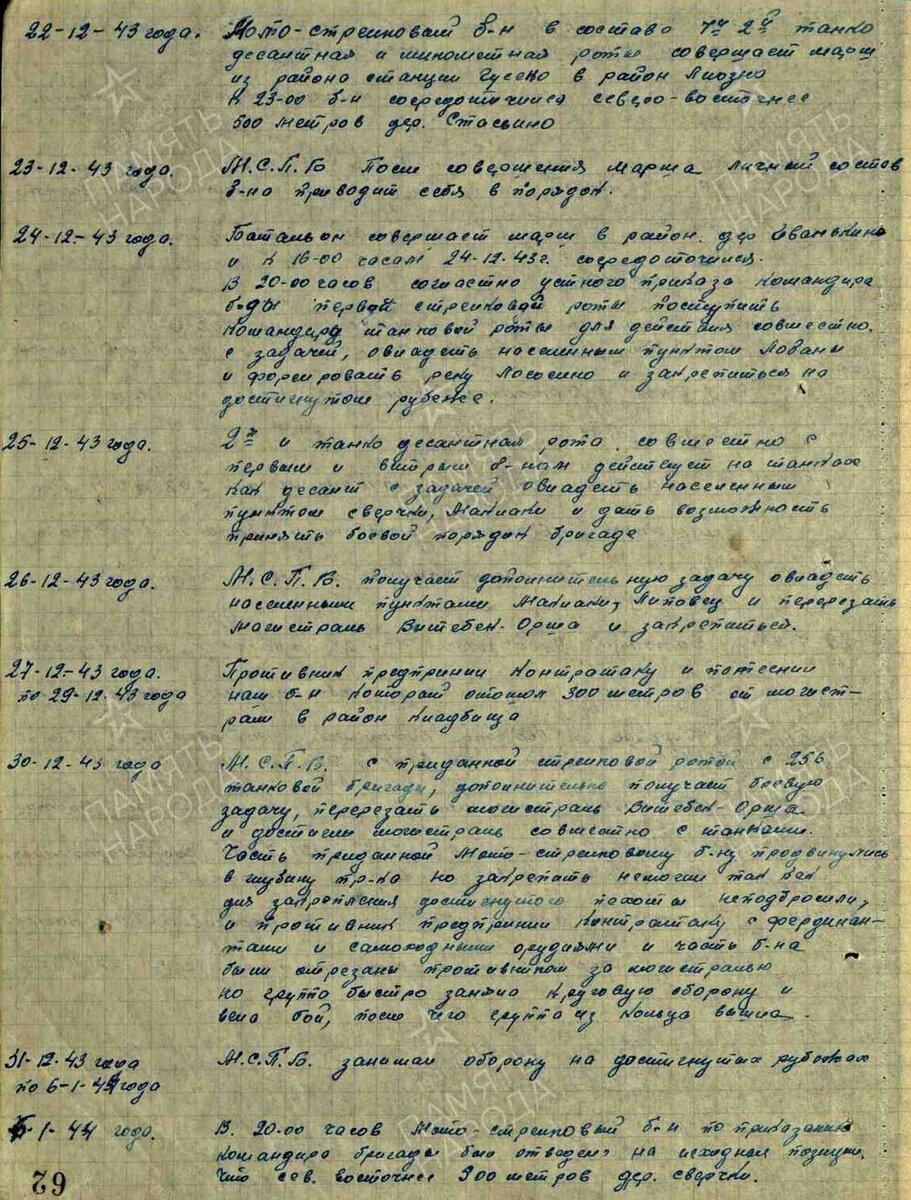 22-12-43 года. Мото-стрелковый б-н в составе 1й 2й танко
десантная и минометная роты совершает марш
из района станции Гусско в район Лиозно
К 23-00 б-н сосредоточился северо-восточнее
500 метров дер. Стасьино
23-12-43 года. М.С.П.Б После совершения марша личный состав
б-на приводит себя в порядок.
24-12-43 года. Батальон совершает марш в район дер Иванькино
и к 16-00 часам 24-12-43г. сосредоточился.
В 20-00 часов согласно устного приказа командира
б-ды первой стрелковой роты поступить
командира танковой роты для действия совместно,
с задачей, овладеть населенным пунктом Лобаны
и форсировать реку Лососино и закрепиться на
достигнутом рубеже.
25-12-43 года. 2я и танко десантная рота совместно с
первым и вторым б-ном действует на танках
как десант с задачей овладеть населенным
пунктом сверчки, Маклаки и дать возможность
принять боевой порядок бригаде
26-12-43 года. М.С.П.Б. получает дополнительную задачу овладеть
населенными пунктами Маклаки, Литовец и перерезать
магистраль Витебск-Орша и закрепиться.
27-12-43 года. Противник предпринял контратаку и потеснил
по 29-12-43 года наш б-н который отошол 300 метров от магист-
рали в район кладбища
30-12-43 года М.С.П.Б. с приданной стрелковой ротой с 256
танковой бригады, дополнительно получает боевую
задачу, перерезать магистраль Витебск-Орша
и достигли магистраль совместно с танками.
Часть приданной Мото-стрелковому б-ну продвинулись
в глубину пр-ка но закрепать немогли так как
для закрепления достигнутого пехоты неподбросили,
и противник предпринял контратаку с фердинан-
тами и самоходными орудиями и часть б-на
были отрезаны противником за магистралью
но группа быстро заняла круговую оборону и
вела бой, после чего группа из кольца вышла.
31-12-43 года М.С.П.Б. занимал оборону на достигнутых рубежах
по 6-1-44 года
6-1-44 года. В 20-00 часов Мото-стрелковый б-н по приказанию
командира бригады был отведен на исходная позиции,
что сев. восточнее 300 метров дер. сверчки.
62
ПАМЯТЬ НАРОДА
ПАМЯТЬ НАРОДА
ПАМЯТЬ НАРОДА
ПАМЯТЬ НАРОДА
ПАМЯТЬ НАРОДА